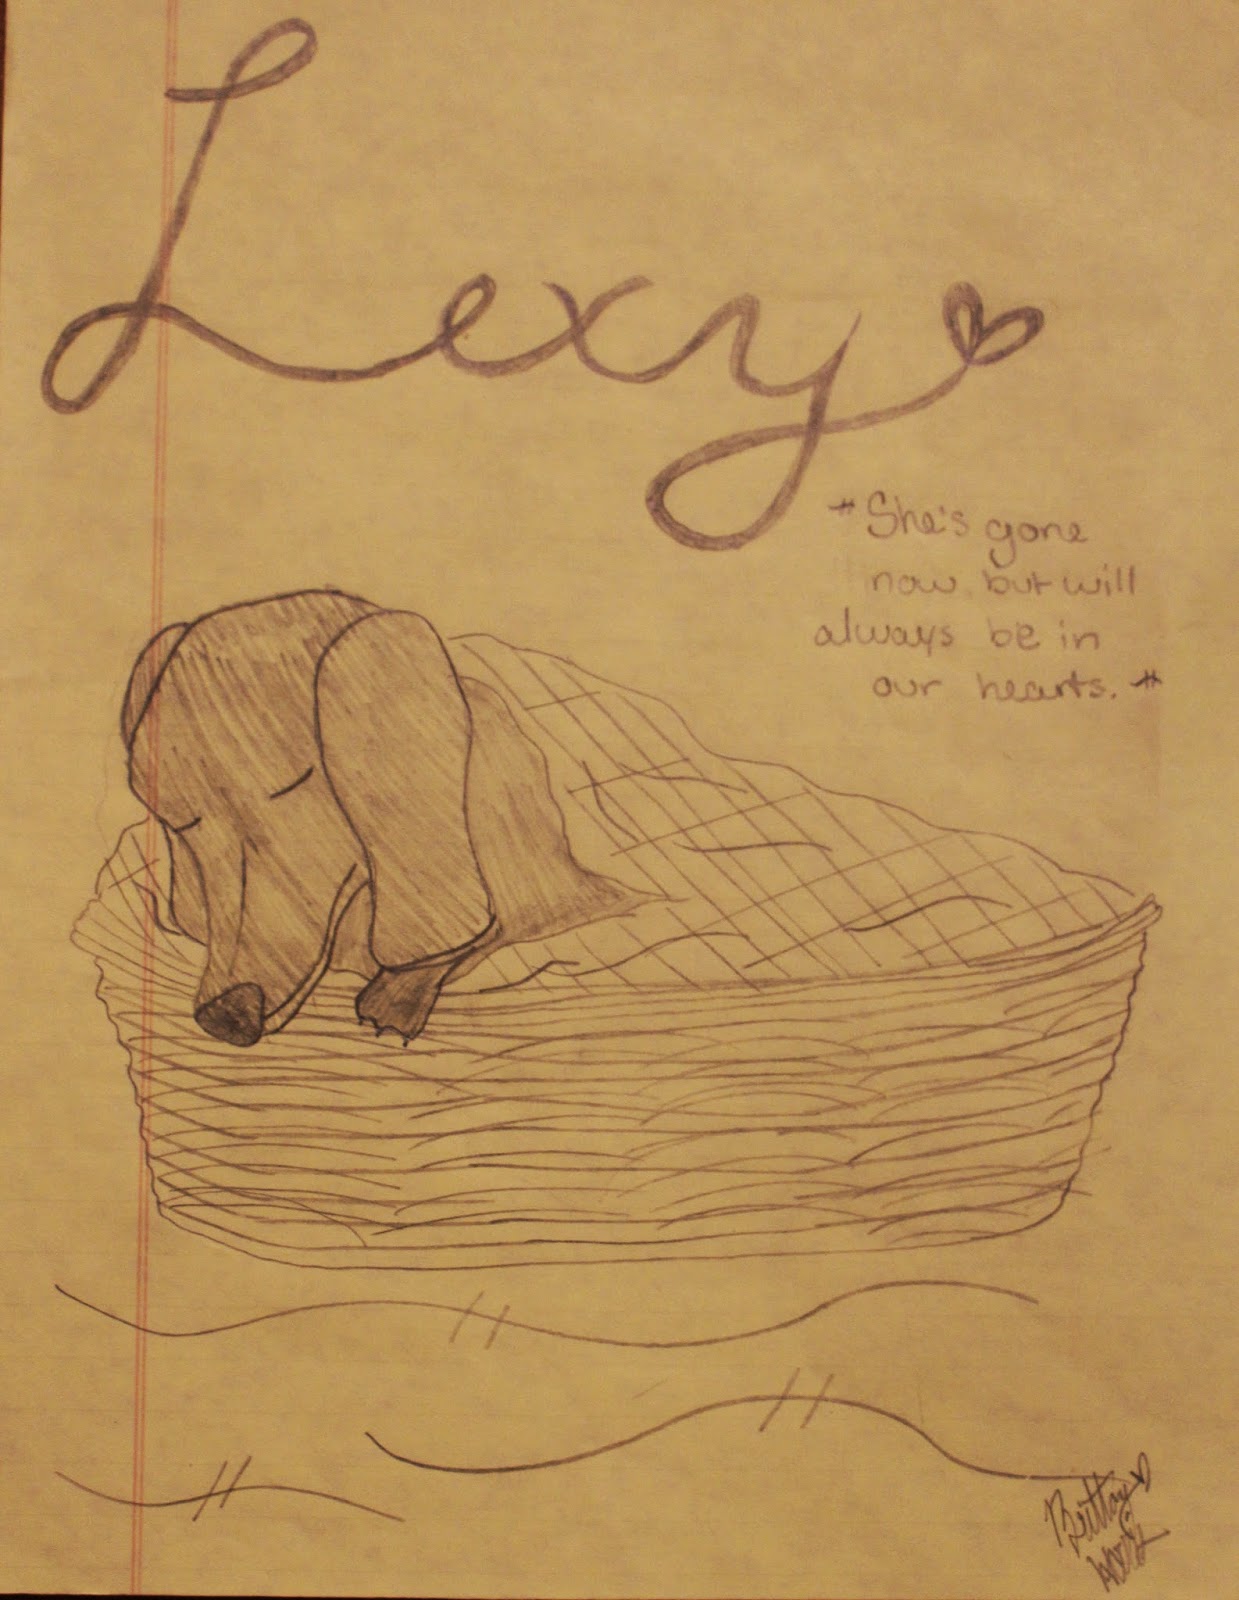 Lexy
*She's gone
now but will
always be in
our hearts.*
Brittay